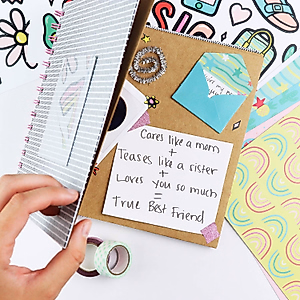 Cares like a mom
+
Teases like a sister
+
Loves you so much
=
True Best Friend